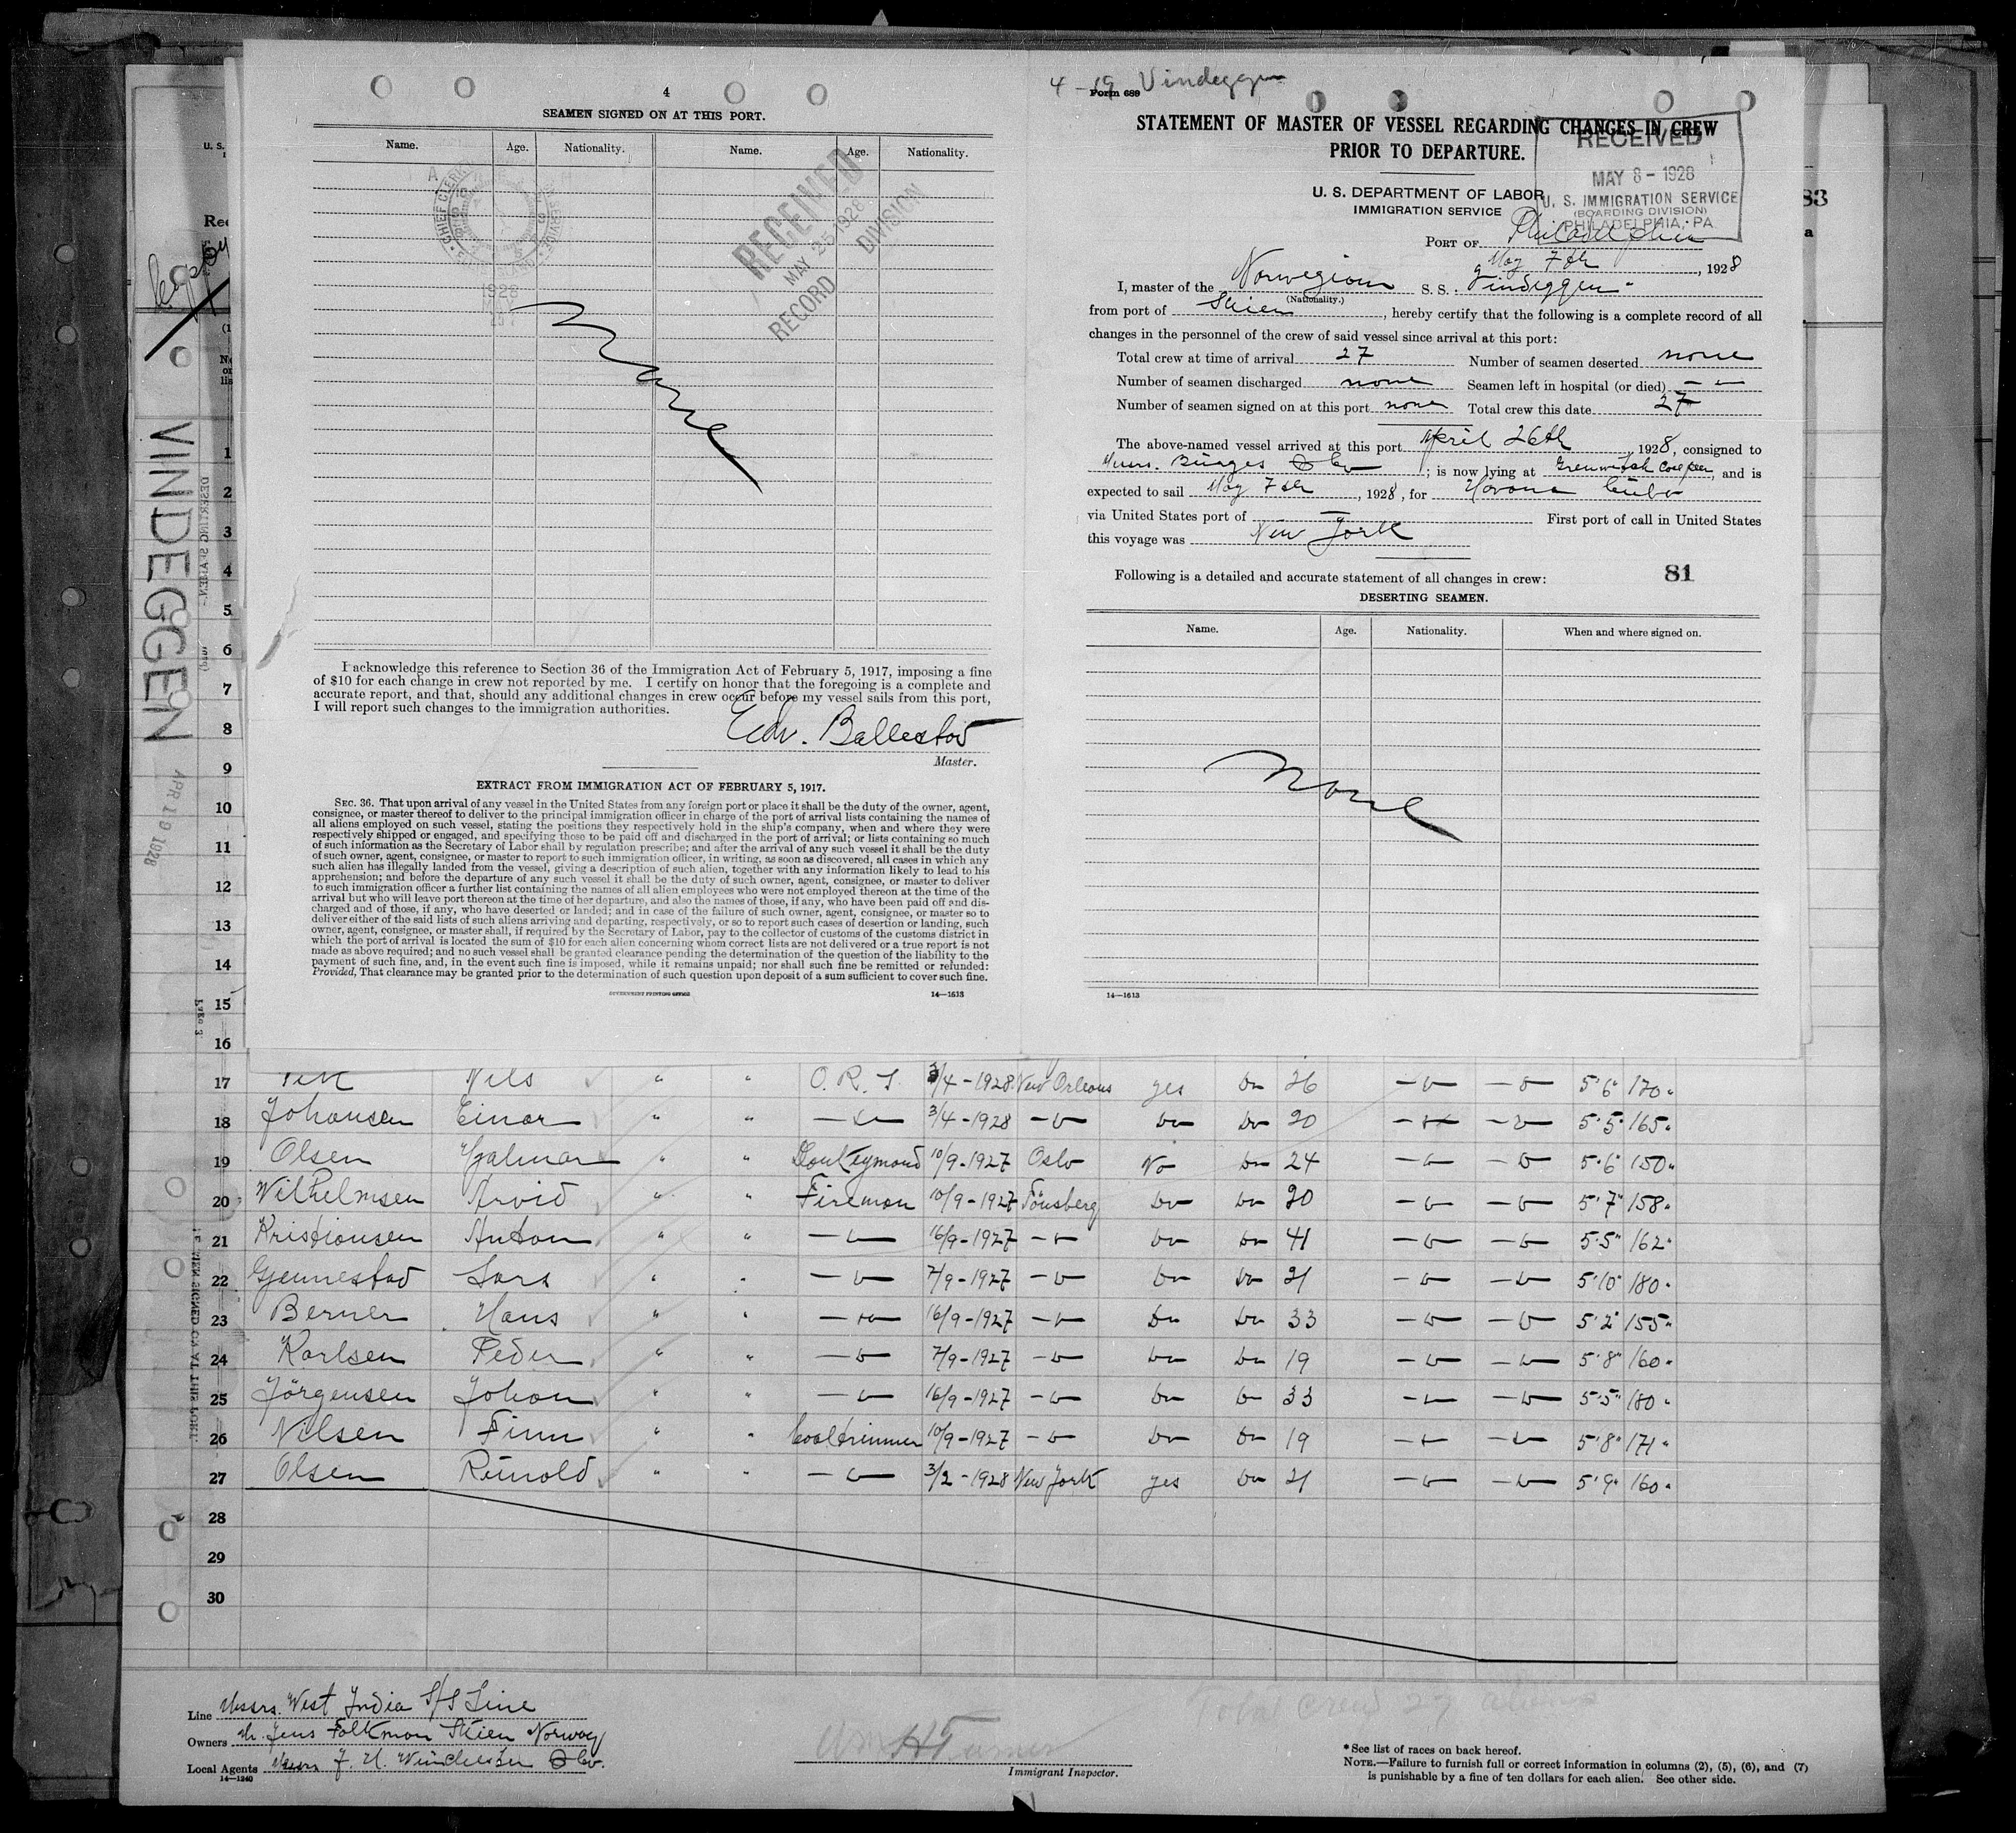 4
SEAMEN SIGNED ON AT THIS PORT.
Name. Age. Nationality. Name. Age. Nationality.
RECEIVED
MAY 25 1928
RECORD DIVISION
None
I acknowledge this reference to Section 36 of the Immigration Act of February 5, 1917, imposing a fine
of $10 for each change in crew not reported by me. I certify on honor that the foregoing is a complete and
accurate report, and that, should any additional changes in crew occur before my vessel sails from this port,
I will report such changes to the immigration authorities.
Edv. Ballestad
Master.
EXTRACT FROM IMMIGRATION ACT OF FEBRUARY 5, 1917.
SEC. 36. That upon arrival of any vessel in the United States from any foreign port or place it shall be the duty of the owner, agent,
consignee, or master thereof to deliver to the principal immigration officer in charge of the port of arrival lists containing the names of
all aliens employed on such vessel, stating the positions they respectively hold in the ship's company, when and where they were
respectively shipped or engaged, and specifying those to be paid off and discharged in the port of arrival; or lists containing so much
of such information as the Secretary of Labor shall by regulation prescribe; and after the arrival of any such vessel it shall be the duty
of such owner, agent, consignee, or master to report to such immigration officer, in writing, as soon as discovered, all cases in which any
such alien has illegally landed from the vessel, giving a description of such alien, together with any information likely to lead to his
apprehension; and before the departure of any such vessel it shall be the duty of such owner, agent, consignee, or master to deliver
to such immigration officer a further list containing the names of all alien employees who were not employed thereon at the time of the
arrival but who will leave port thereon at the time of her departure, and also the names of those, if any, who have been paid off and dis-
charged and of those, if any, who have deserted or landed; and in case of the failure of such owner, agent, consignee, or master so to
deliver either of the said lists of such aliens arriving and departing, respectively, or so to report such cases of desertion or landing, such
owner, agent, consignee, or master shall, if required by the Secretary of Labor, pay to the collector of customs of the customs district in
which the port of arrival is located the sum of $10 for each alien concerning whom correct lists are not delivered or a true report is not
made as above required; and no such vessel shall be granted clearance pending the determination of the question of the liability to the
payment of such fine, and, in the event such fine is imposed, while it remains unpaid; nor shall such fine be remitted or refunded:
Provided, That clearance may be granted prior to the determination of such question upon deposit of a sum sufficient to cover such fine.
GOVERNMENT PRINTING OFFICE 14—1613
4 - 19 Vindeggen
Form 689
STATEMENT OF MASTER OF VESSEL REGARDING CHANGES IN CREW
PRIOR TO DEPARTURE.
RECEIVED
MAY 8 - 1928
U. S. IMMIGRATION SERVICE
(BOARDING DIVISION)
PHILADELPHIA, PA
U. S. DEPARTMENT OF LABOR
IMMIGRATION SERVICE
PORT OF Philadelphia
May 7th, 1928
I, master of the Norwegian S. S. Vindeggen
(Nationality.)
from port of Skien, hereby certify that the following is a complete record of all
changes in the personnel of the crew of said vessel since arrival at this port:
Total crew at time of arrival 27 Number of seamen deserted none
Number of seamen discharged none Seamen left in hospital (or died) - " -
Number of seamen signed on at this port none Total crew this date 27
The above-named vessel arrived at this port April 26th, 1928, consigned to
Messrs. Burges & Co; is now lying at Greenwitsh Coal pier, and is
expected to sail May 7th, 1928, for Havana Cuba
via United States port of — First port of call in United States
this voyage was New York
Following is a detailed and accurate statement of all changes in crew: 81
DESERTING SEAMEN.
Name. Age. Nationality. When and where signed on.
None
14—1613
VINDEGGEN
APR 19 1928
U. S.
83
1
2
3
4
5
6
7
8
9
10
11
12
13
14
15
16
17 Nils " " O. R. S. 3/4-1928 New Orleans yes do 26 -"- -"- 5'6" 170"
18 Johansen Einar " " -"- 3/4-1928 -"- do do 20 -"- -"- 5'5" 165"
19 Olsen Hjalmar " " Donkeymand 10/9-1927 Oslo No do 24 -"- -"- 5'6" 150"
20 Wilhelmsen Arvid " " Fireman 10/9-1927 Tönsberg do do 20 -"- -"- 5'7" 158"
21 Kristiansen Anton " " -"- 16/9-1927 -"- do do 41 -"- -"- 5'5" 162"
22 Gjennestad Lars " " -"- 7/9-1927 -"- do do 21 -"- -"- 5'10" 180"
23 Berner Hans " " -"- 16/9-1927 -"- do do 33 -"- -"- 5'2" 155"
24 Karlsen Peder " " -"- 7/9-1927 -"- do do 19 -"- -"- 5'8" 160"
25 Jörgensen Johan " " -"- 16/9-1927 -"- do do 33 -"- -"- 5'5" 180"
26 Nilsen Finn " " Coaltrimmer 10/9-1927 -"- do do 19 -"- -"- 5'8" 171"
27 Olsen Reinold " " -"- 3/2-1928 New York yes do 21 -"- -"- 5'9" 160"
28
29
30
Total crew 27 aliens
Line Messrs. West India S/S Line
Owners Mr. Jens Folkman Skien Norway
Local Agents Messrs F. H. Winchester & Co.
14—1240
Immigrant Inspector.
*See list of races on back hereof.
NOTE.—Failure to furnish full or correct information in columns (2), (5), (6), and (7)
is punishable by a fine of ten dollars for each alien. See other side.